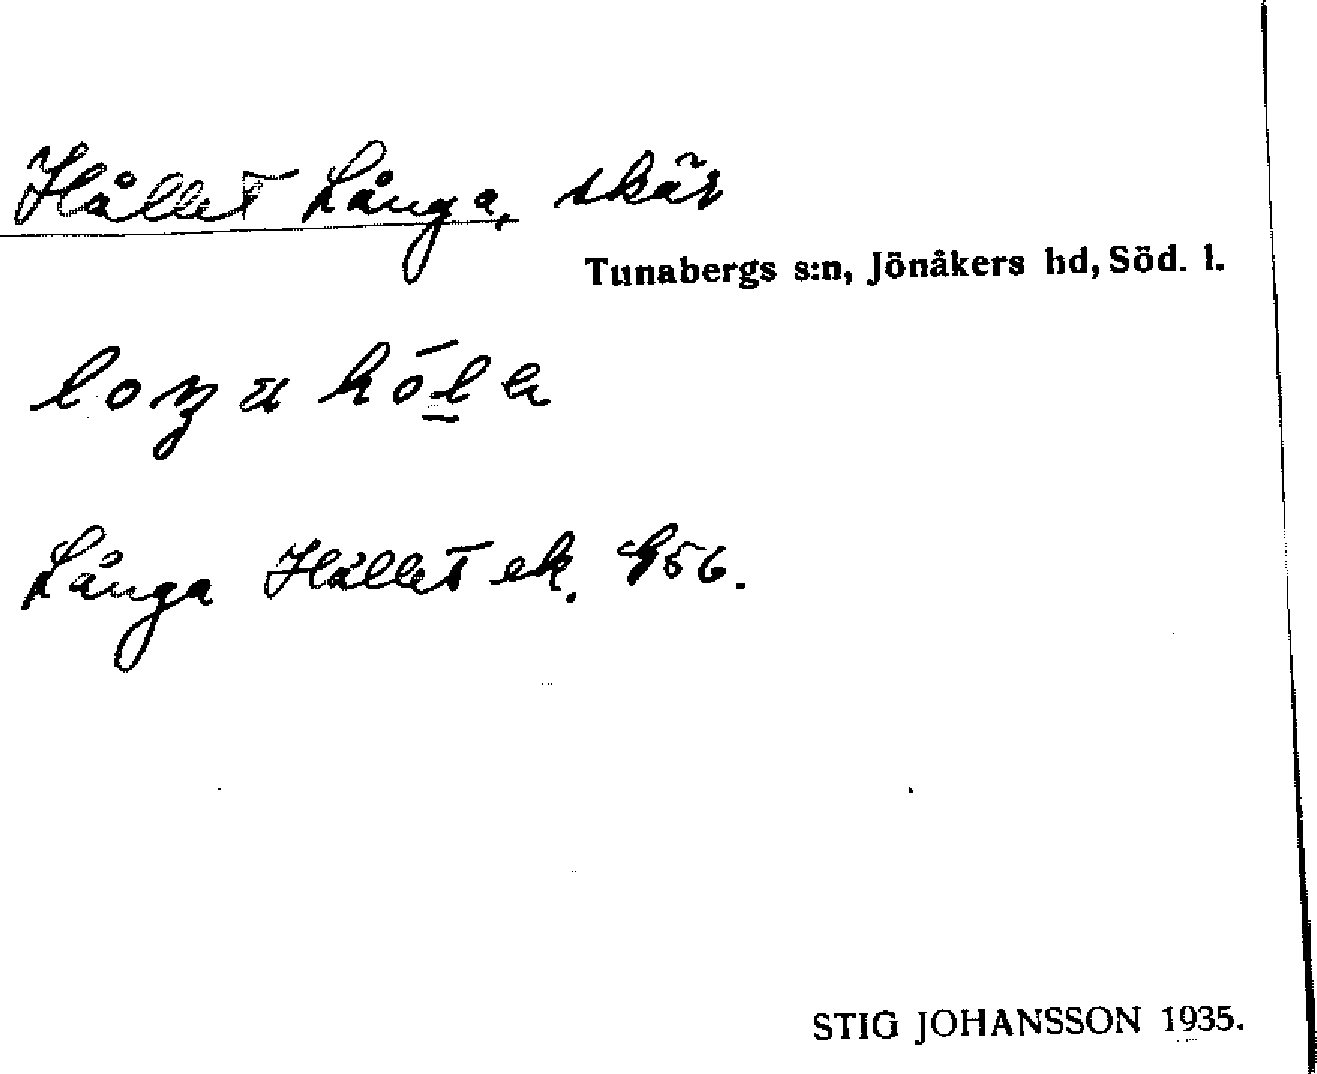 Hållet Långa, skär
Tunabergs s:n, Jönåkers hd, Söd. l.
Långa Hållet ek. G56.
STIG JOHANSSON 1935.